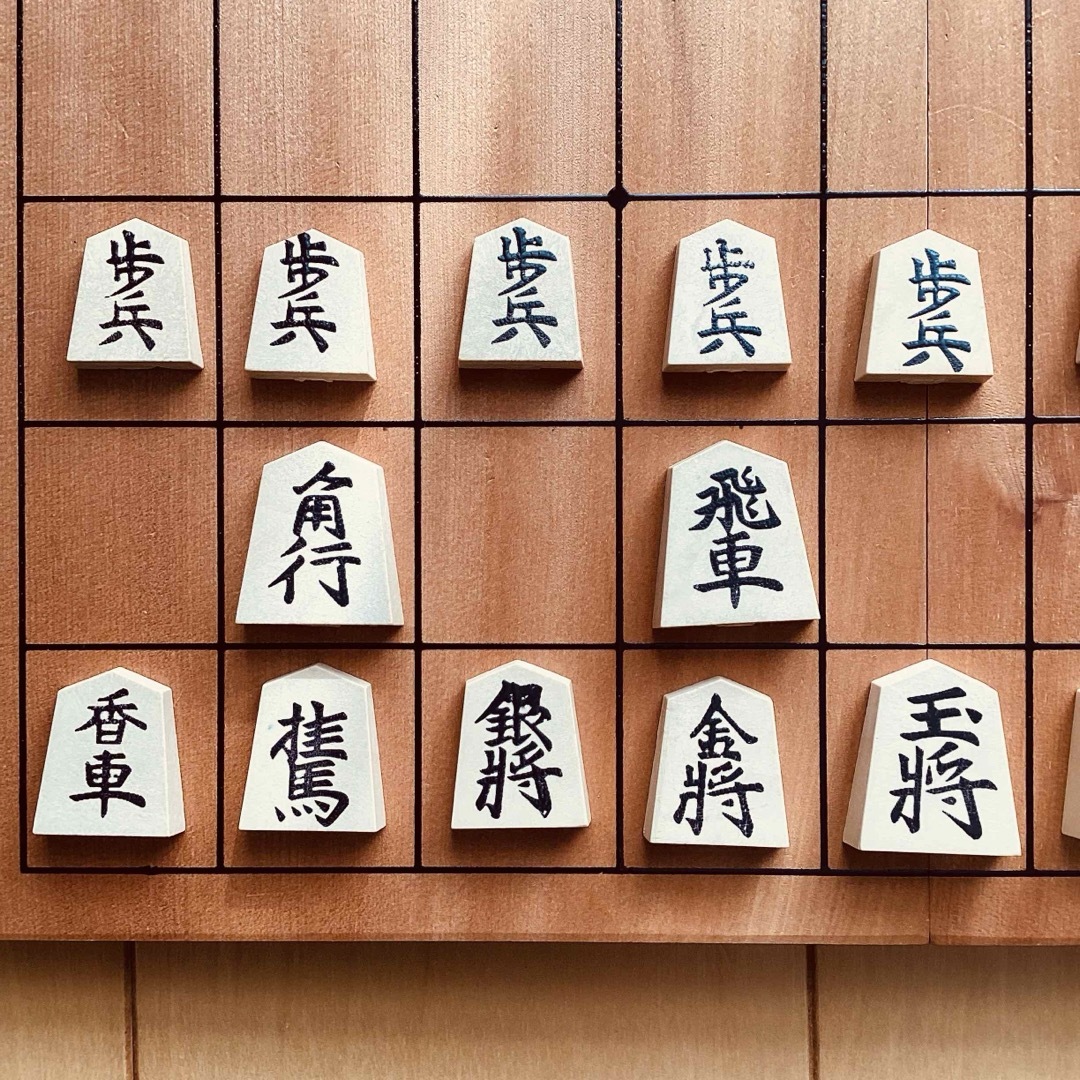 歩兵
歩兵
歩兵
歩兵
歩兵
角行
飛車
香車
桂馬
銀將
金將
玉將